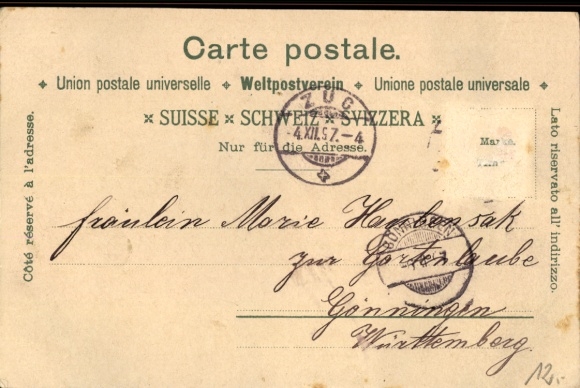 Carte postale.
Union postale universelle ✦ Weltpostverein ✦ Unione postale universale
SUISSE × SCHWEIZ × SVIZZERA
Nur für die Adresse.
Côté réservé à l'adresse.
Lato riservato all' indirizzo.
ZUG
4.XII.97.-4
Marke.
Fräulein Marie
zur Gartenlaube
Gönningen
Württemberg.
12.-